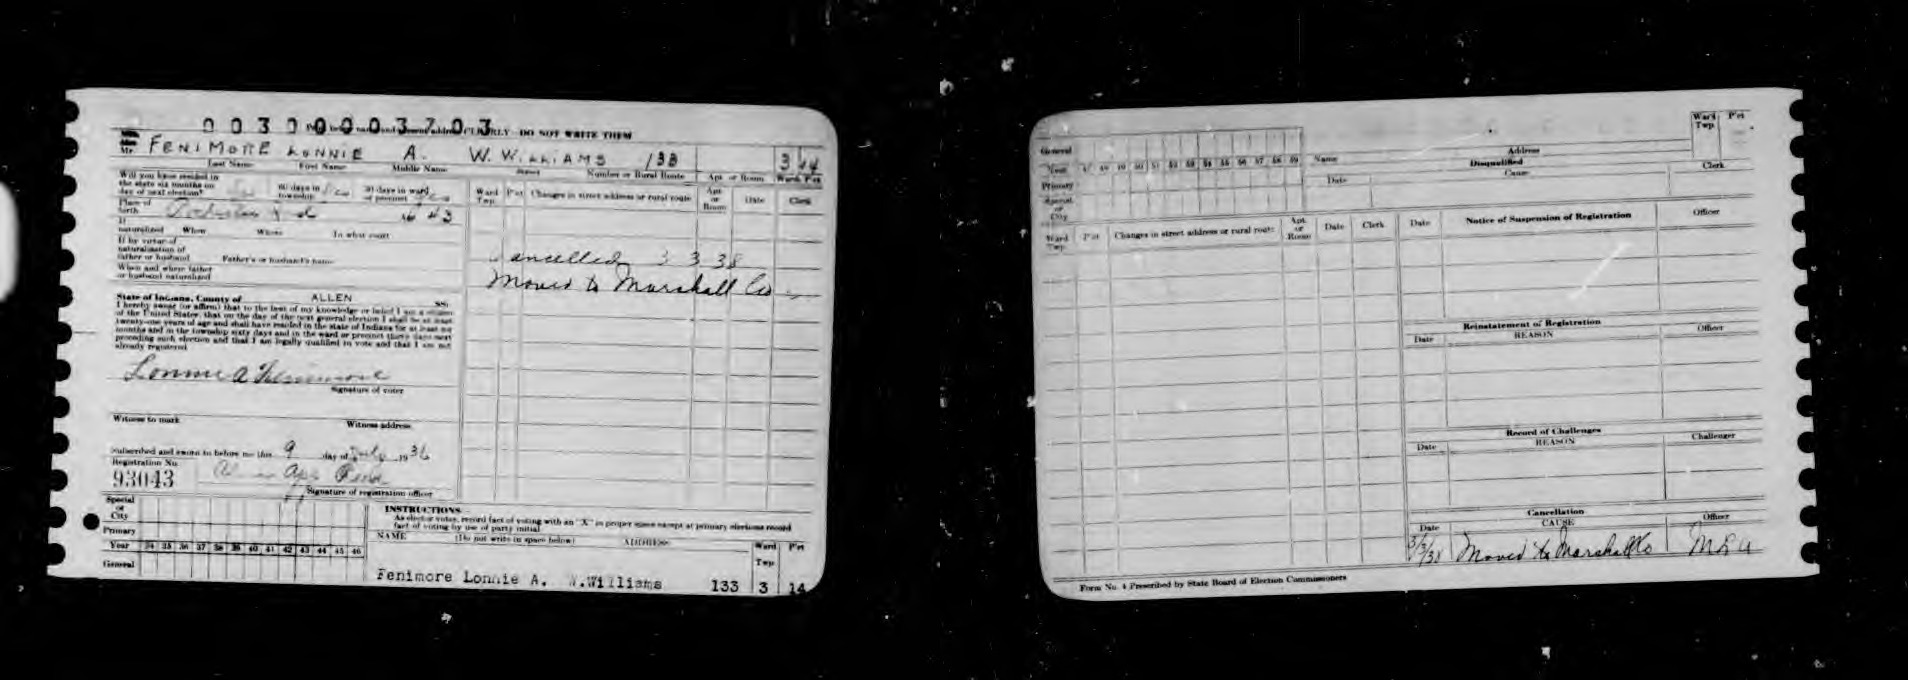 00300003703
CLEARLY - DO NOT WRITE THEM
Mr. FENIMORE LONNIE A. W. WILLIAMS 133 3 14
Last Name First Name Middle Name Street Number or Rural Route Apt. or Room Ward Pct
Will you have resided in
the state six months on
day of next election? 60 days in township 30 days in ward or precinct
Place of birth 43
If naturalized When Where In what court
If by virtue of
naturalization of
father or husband Father's or husband's name
When and where father
or husband naturalized
State of Indiana, County of ALLEN SS:
I hereby swear (or affirm) that to the best of my knowledge or belief I am a citizen
of the United States, that on the day of the next general election I shall be at least
twenty-one years of age and shall have resided in the state of Indiana for at least six
months and in the township sixty days and in the ward or precinct thirty days next
preceding such election and that I am legally qualified to vote and that I am not
already registered
Lonnie A Fenimore
Signature of voter
Witness to mark Witness address
Subscribed and sworn to before me this 9 day of July 1936
Registration No.
93043
Signature of registration officer
Ward Twp. Pct Changes in street address or rural route Apt. or Room Date Clerk
Cancelled 3 3 38
Moved to Marshall Co
Special or City
Primary
Year 34 35 36 37 38 39 40 41 42 43 44 45 46
General
INSTRUCTIONS
As elector votes, record fact of voting with an "X" in proper space except at primary elections record
fact of voting by use of party initial.
NAME (Do not write in space below) ADDRESS Ward Twp Pct
Fenimore Lonnie A. W.Williams 133 3 14
General
Year 47 48 49 50 51 52 53 54 55 56 57 58 59
Primary
Special or City
Name Address Ward Twp Pct
Disqualified
Date Cause Clerk
Ward Twp. Pct Changes in street address or rural route Apt. or Room Date Clerk
Date Notice of Suspension of Registration Officer
Reinstatement of Registration
Date REASON Officer
Record of Challenges
Date REASON Challenger
Cancellation
Date CAUSE Officer
3/3/38 Moved to Marshall Co
Form No. 4 Prescribed by State Board of Election Commissioners